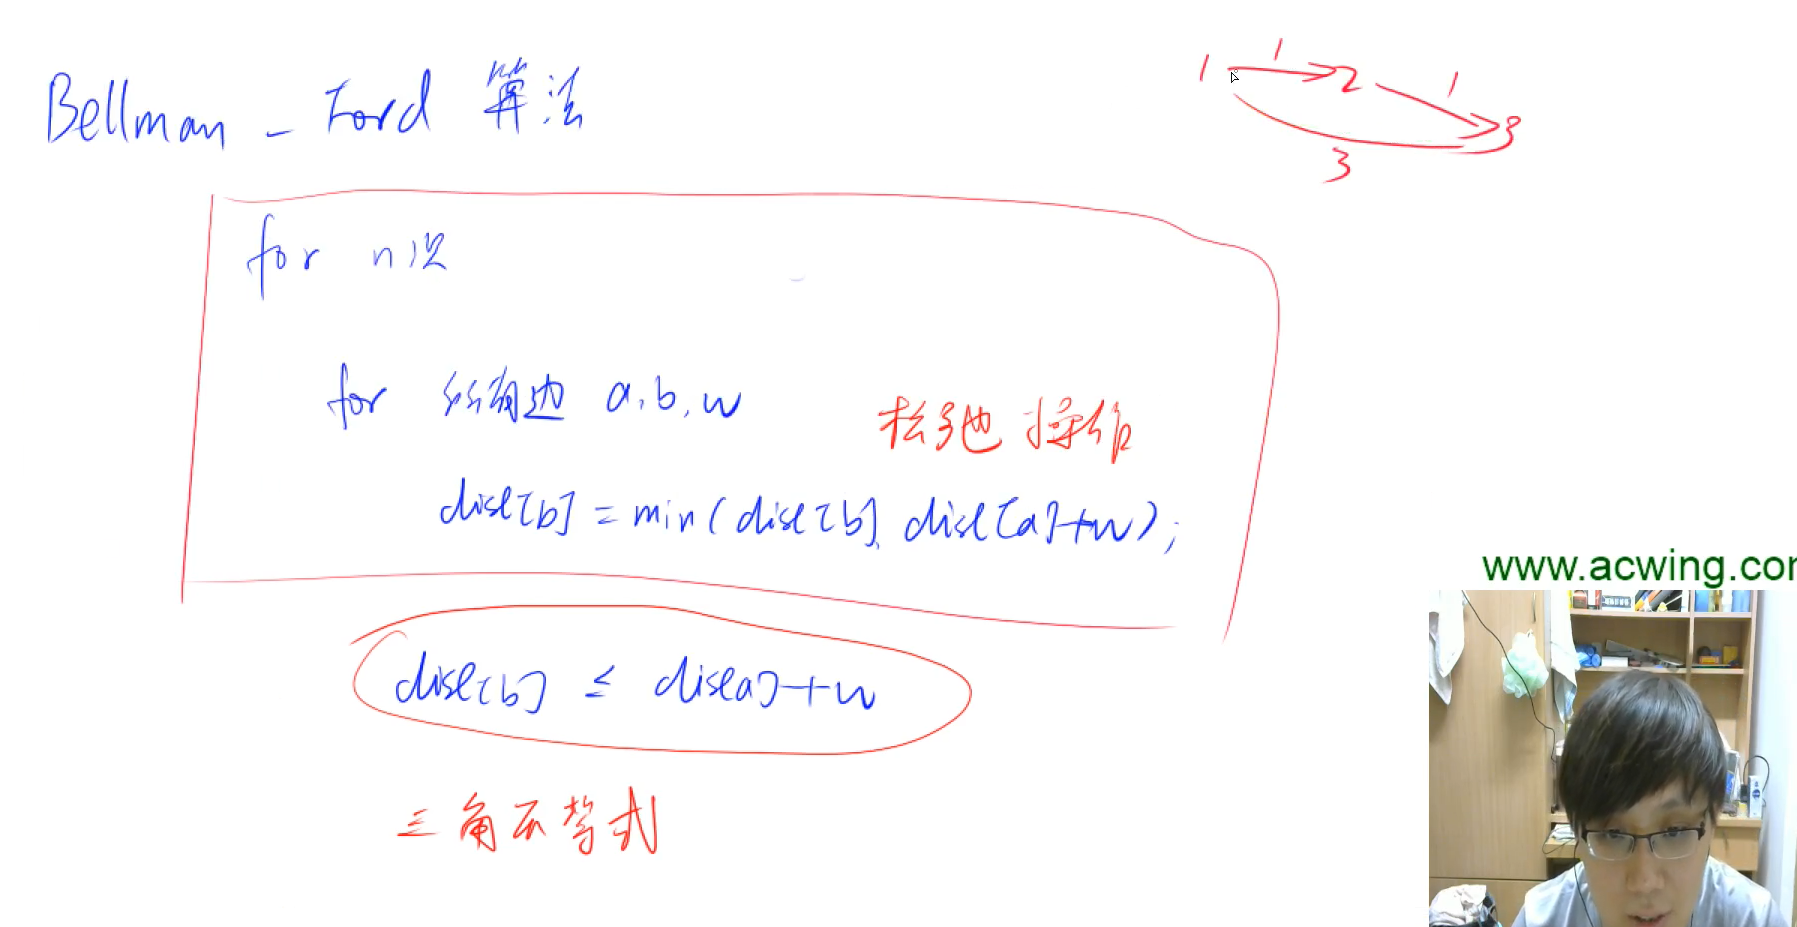 Bellman - Ford 算法
1 1 2 1 3
3
for n次
for 所有边 a,b,w
松弛操作
dist[b] = min(dist[b], dist[a]+w);
dist[b] ≤ dist[a]+w
三角不等式
www.acwing.com